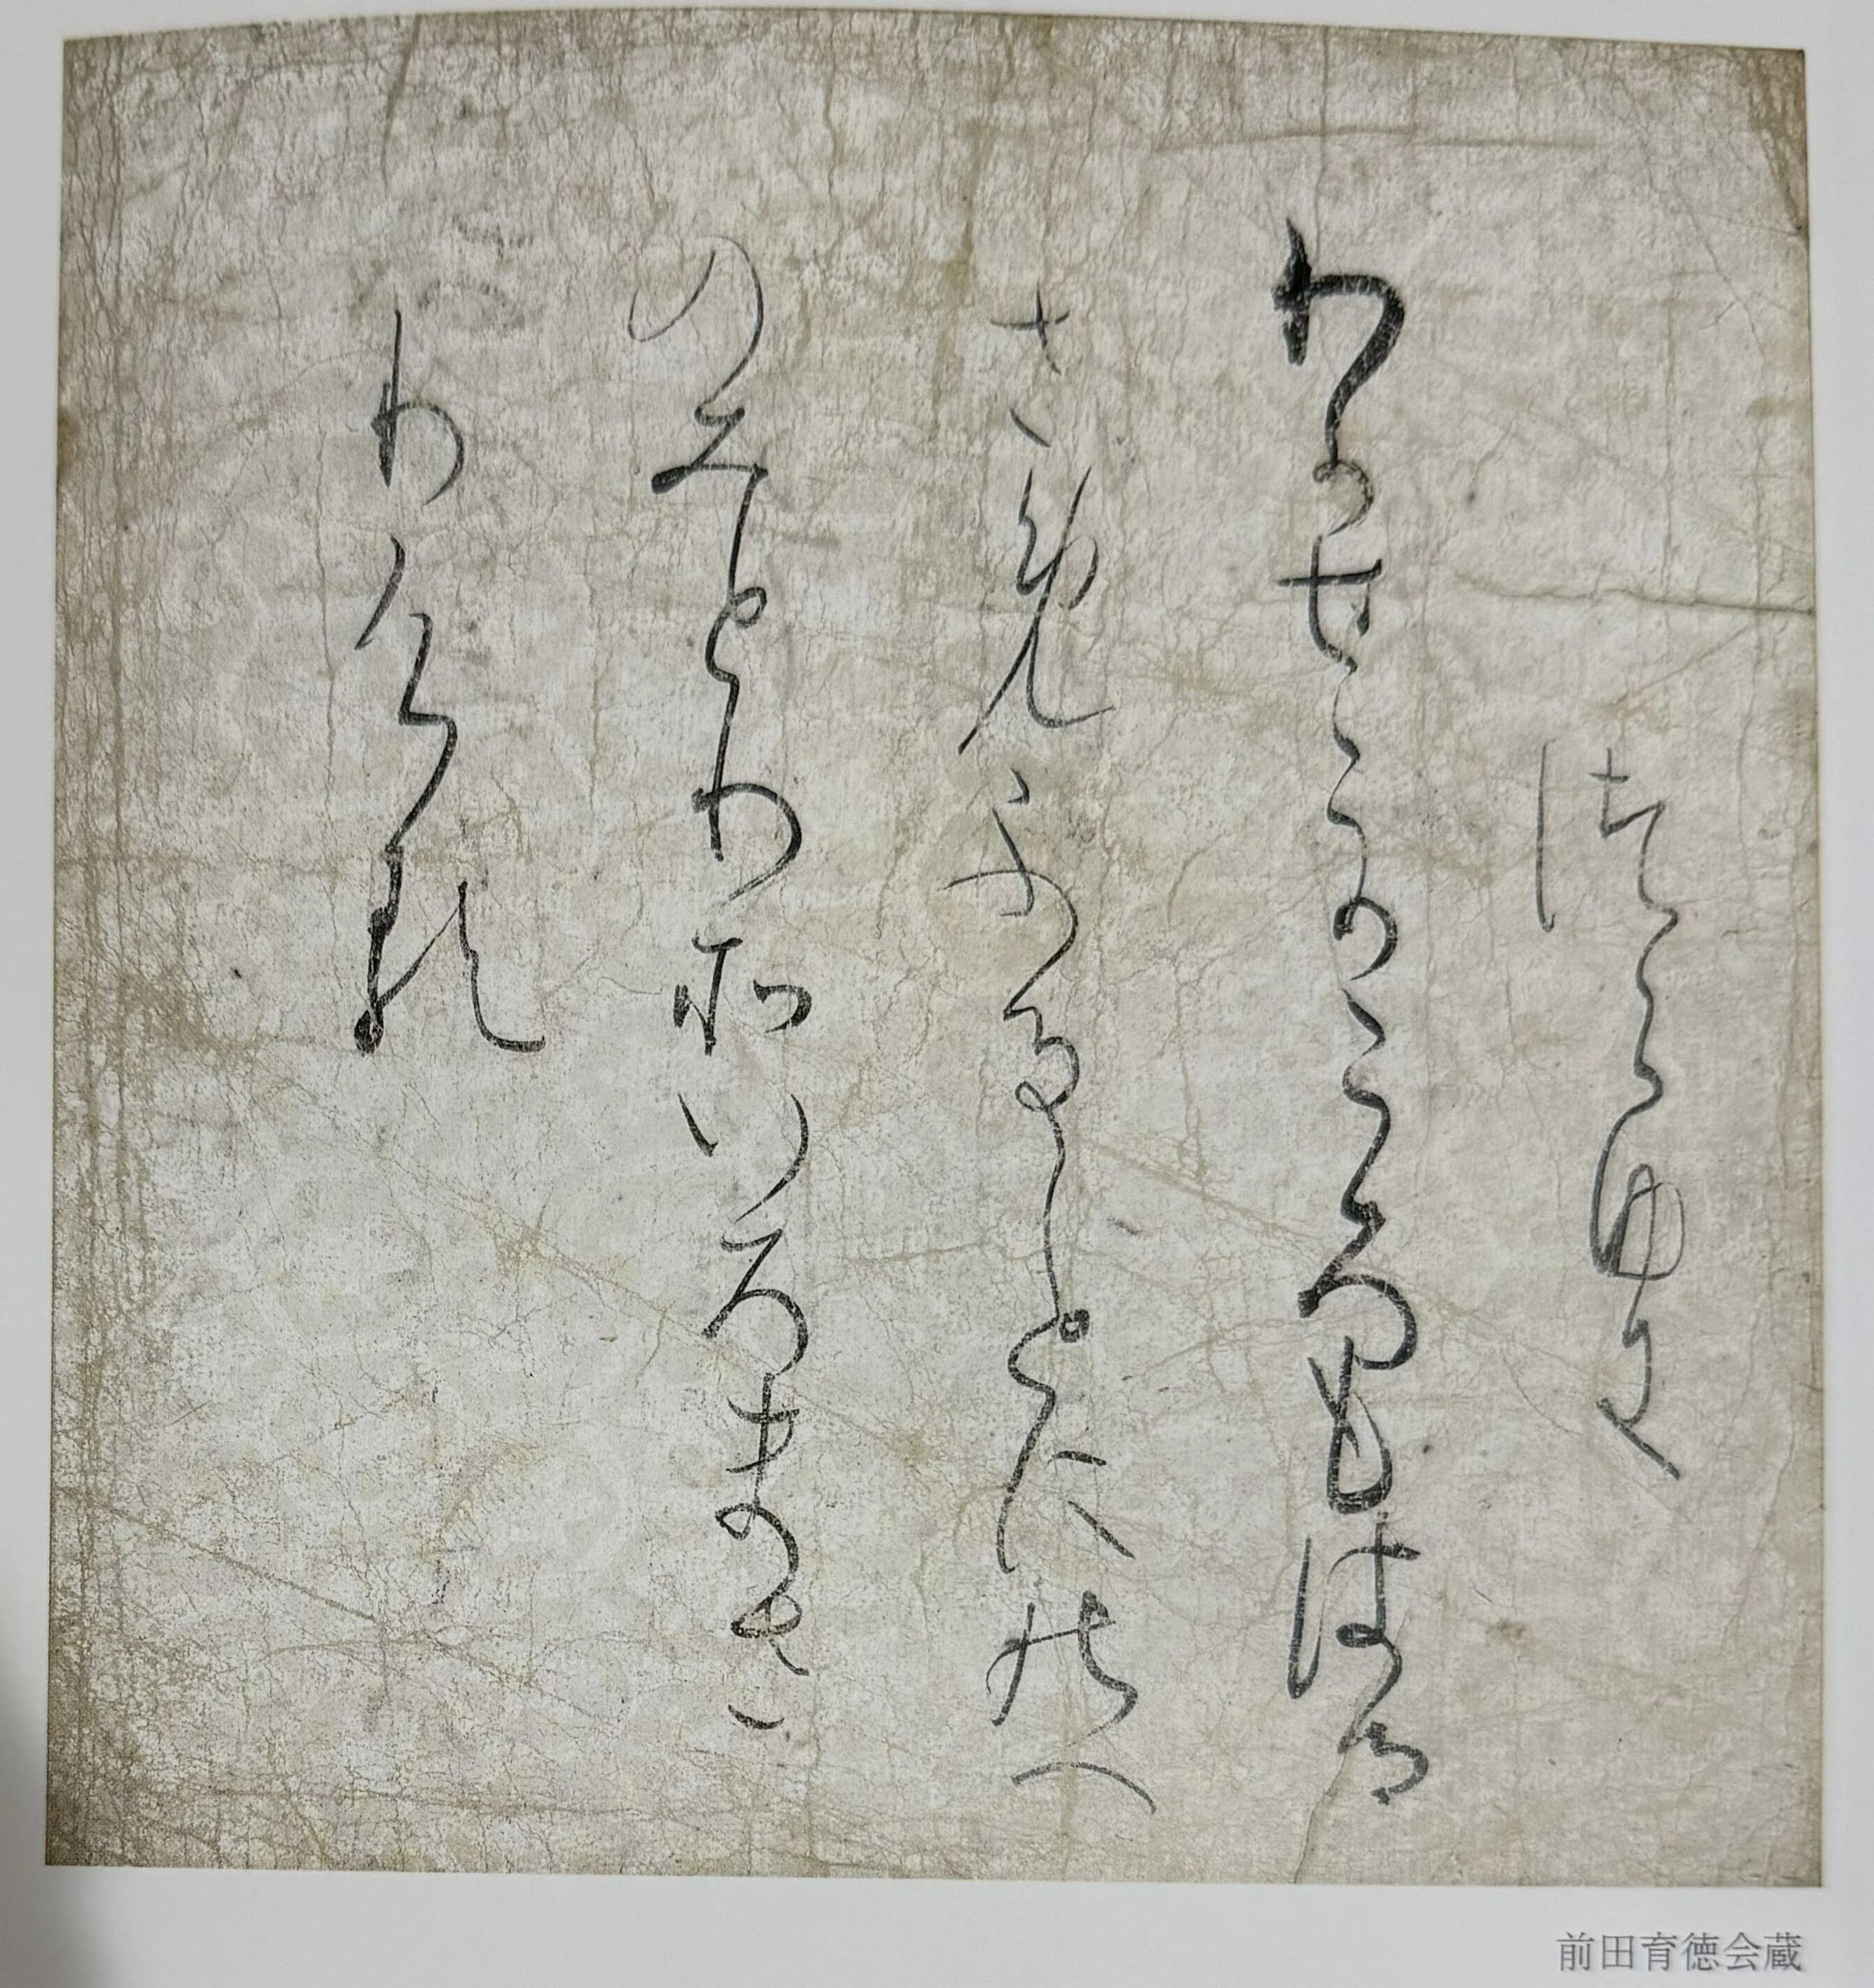 つらゆき
わかせこかころもはる
さめふることにのへ
のみとりそいろまさ
りける
前田育徳会蔵